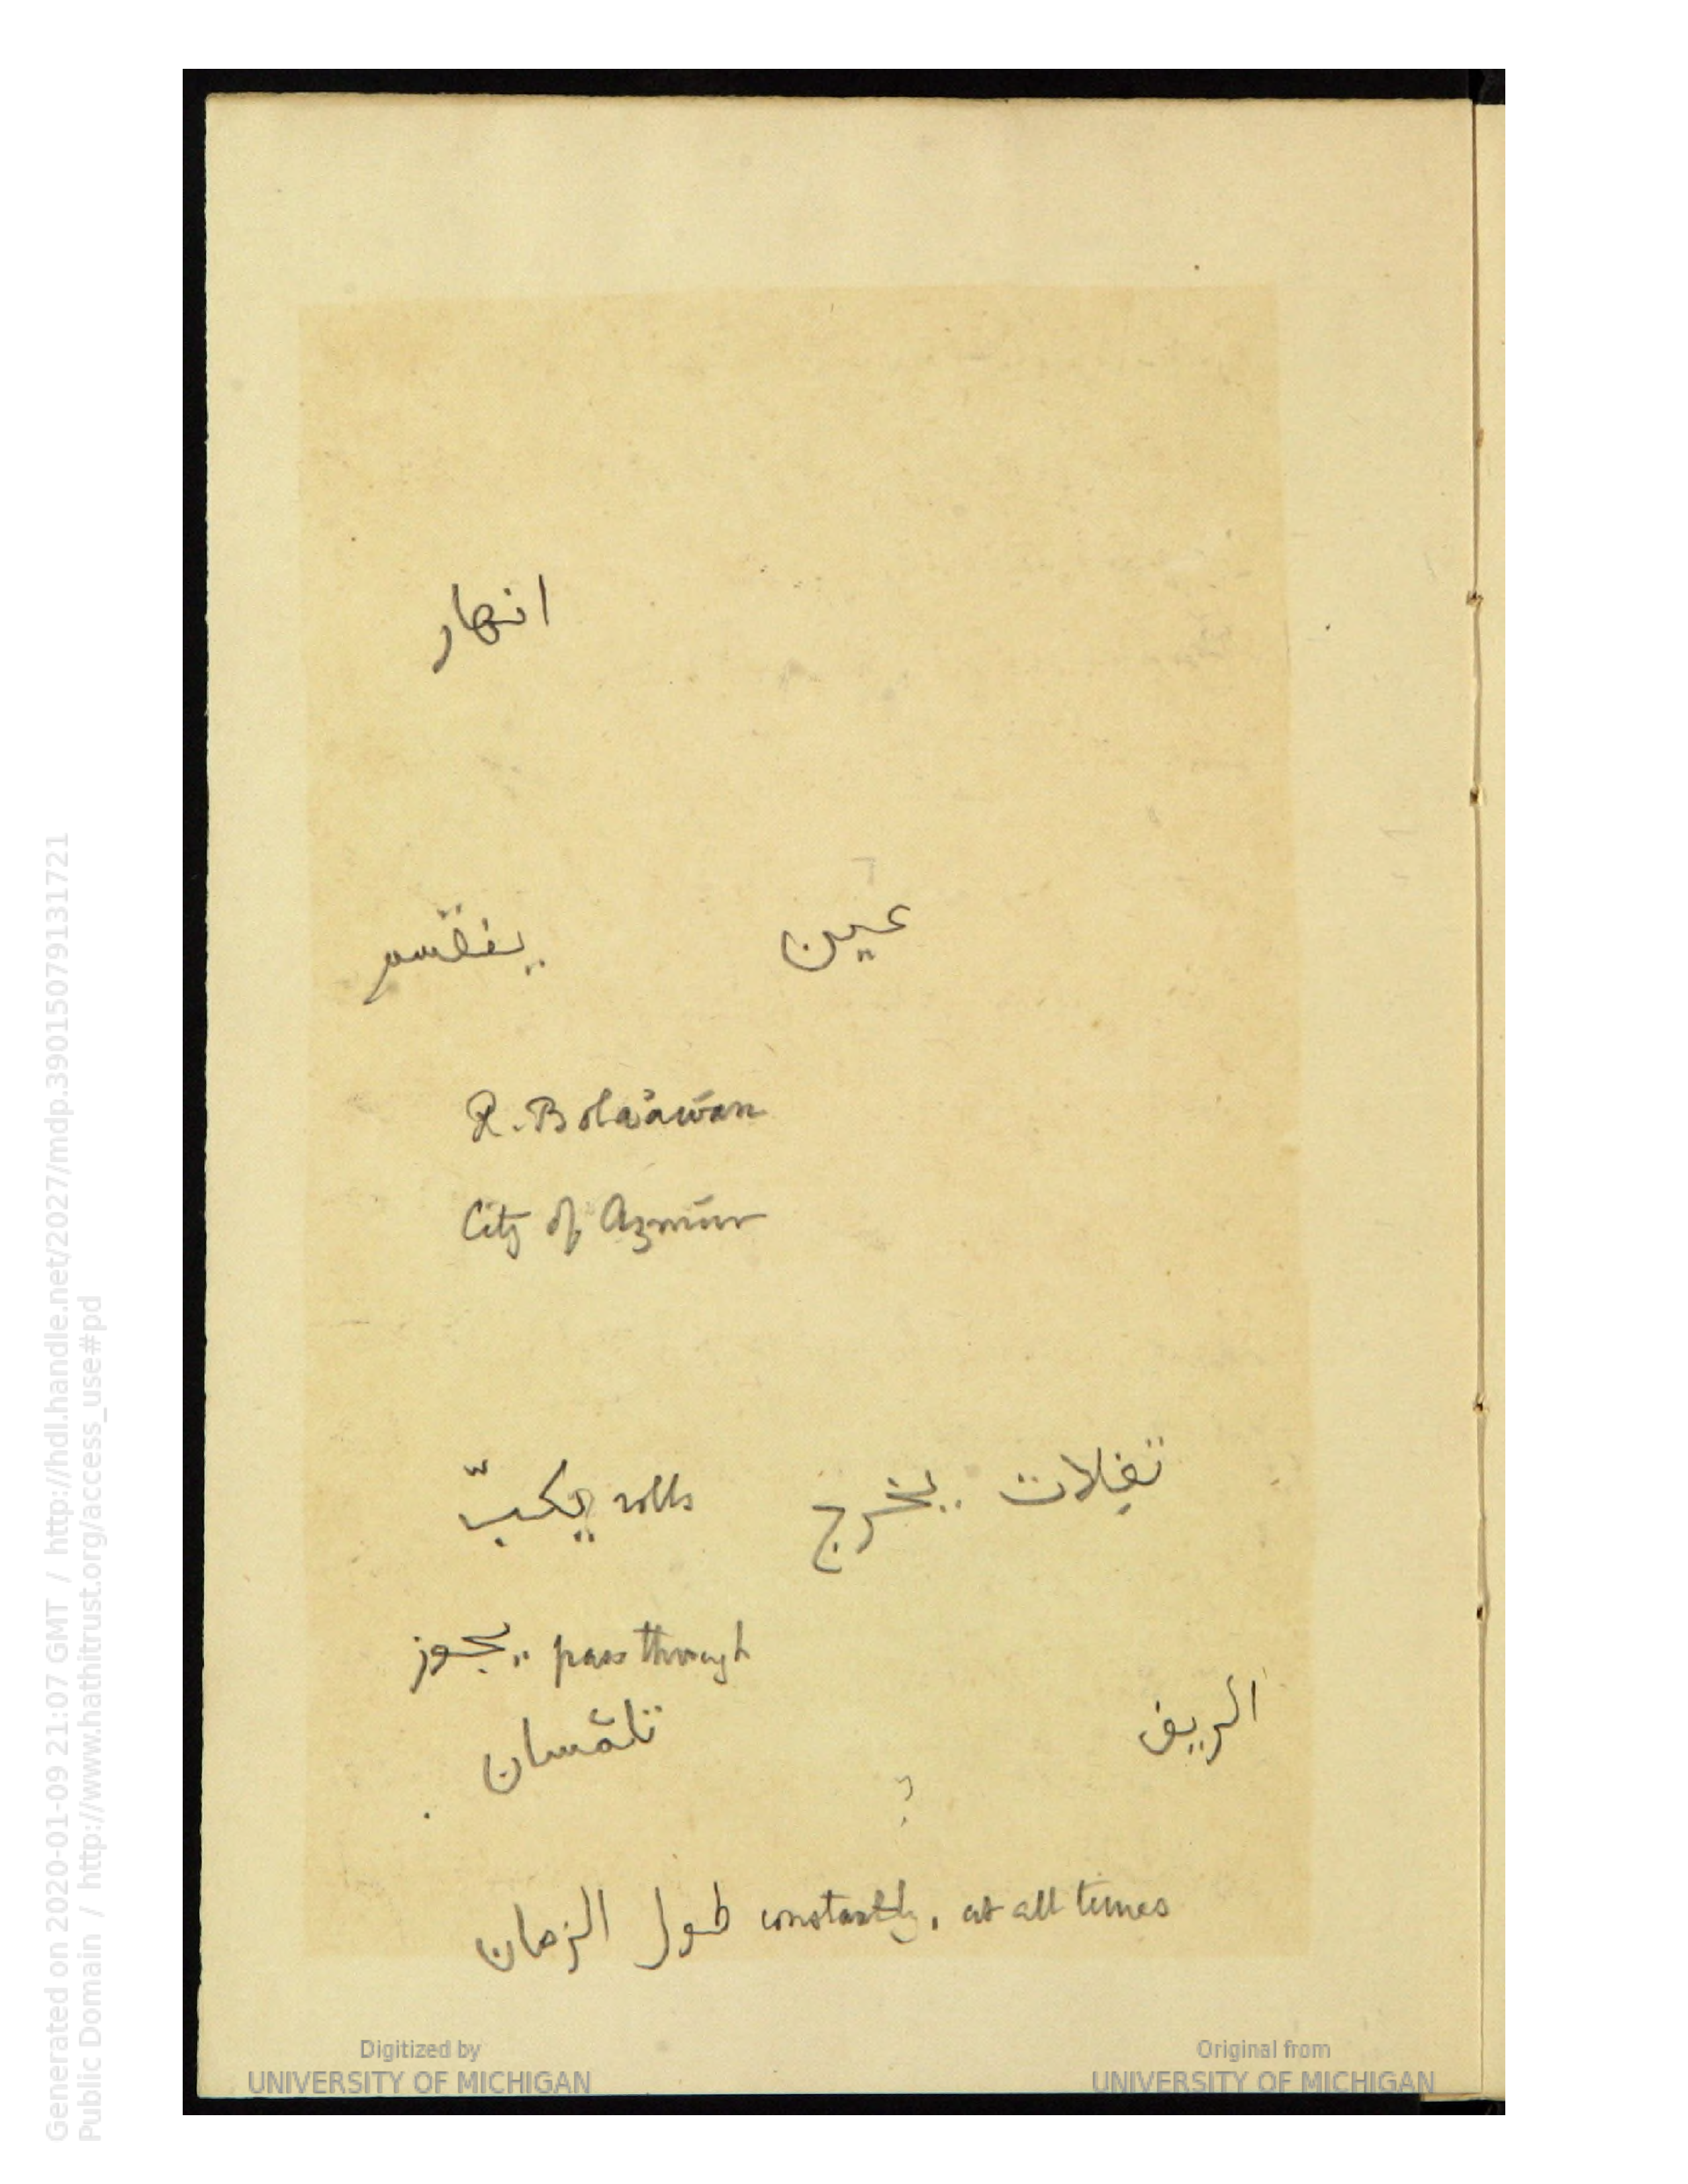 انهار
عين ينقسم
R. Bola'awān
City of Azmūr
تفيلات يخرج rolls يكبّ
pass through يجوز
الريف تلمسان
?
constantly, at all times طول الزمان
Digitized by UNIVERSITY OF MICHIGAN
Original from UNIVERSITY OF MICHIGAN
Generated on 2020-01-09 21:07 GMT / http://hdl.handle.net/2027/mdp.39015079131721
Public Domain / http://www.hathitrust.org/access_use#pd